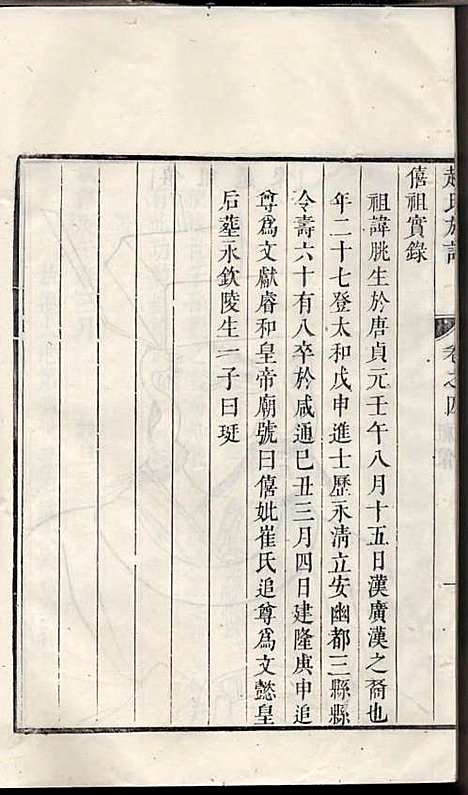 趙氏族譜
卷之四
一
僖祖實錄
祖諱朓生於唐貞元壬午八月十五日漢廣漢之裔也
年二十七登太和戊申進士歷永清立安幽都三縣縣
令壽六十有八卒於咸通己丑三月四日建隆庚申追
尊爲文獻睿和皇帝廟號曰僖妣崔氏追尊爲文懿皇
后塟永欽陵生一子曰珽